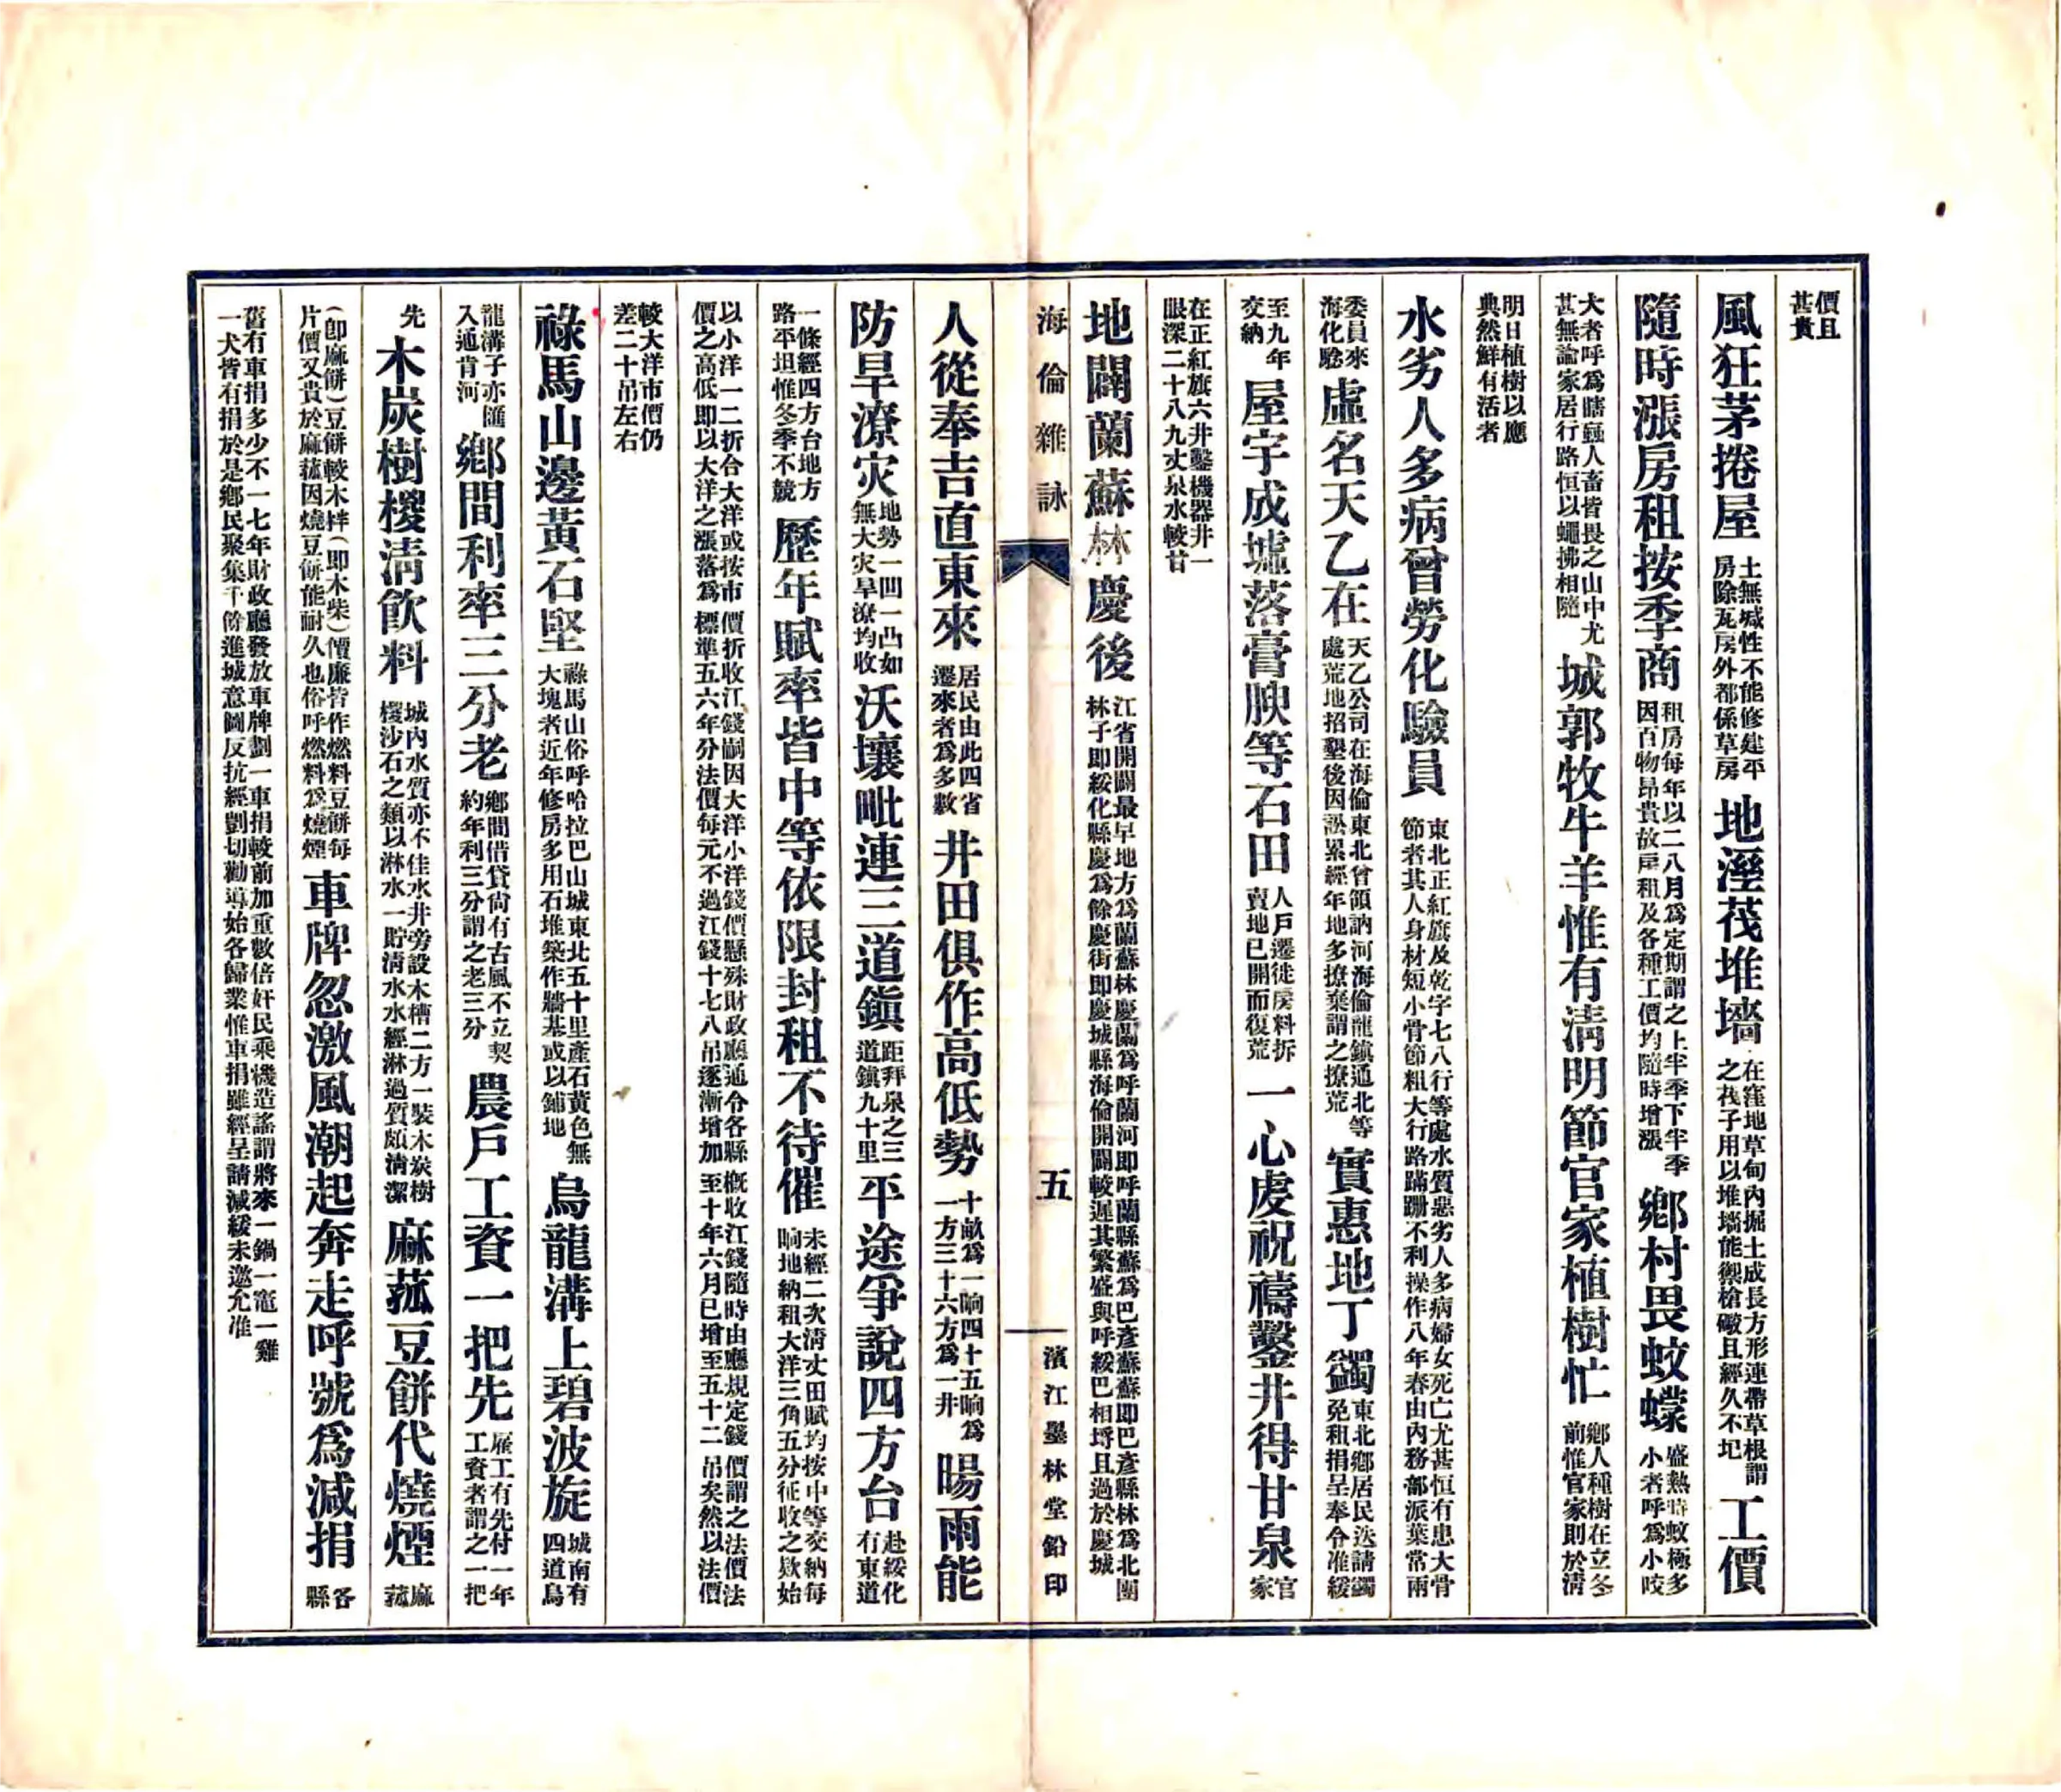 價且
甚貴
風狂茅捲屋
土無堿性不能修建平
房除瓦房外都係草房
地溼茷堆墻
在窪地草甸內掘土成長方形連帶草根謂
之茷子用以堆墻能禦槍礮且經久不圮
工價
隨時漲房租按季商
租房每年以二八月爲定期謂之上半季下半季
因百物昂貴故房租及各種工價均隨時增漲
鄉村畏蚊蠓
盛熱時蚊極多
小者呼爲小咬
大者呼爲瞎蝱人畜皆畏之山中尤
甚無論家居行路恒以蠅拂相隨
城郭牧牛羊惟有淸明節官家植樹忙
鄉人種樹在立冬
前惟官家則於淸
明日植樹以應
典然鮮有活者
水劣人多病曾勞化驗員
東北正紅旗及乾字七八行等處水質惡劣人多病婦女死亡尤甚恒有患大骨
節者其人身材短小骨節粗大行路蹣跚不利操作八年春由內務部派葉常兩
委員來
海化騐
虛名天乙在
天乙公司在海倫東北曾領訥河海倫龍鎮通北等
處荒地招墾後因訟累經年地多撩棄謂之撩荒
實惠地丁蠲
東北鄉居民迭請蠲
免租捐呈奉令准緩
至九年
交納
屋宇成墟落膏腴等石田
人戶遷徙房料拆
賣地已開而復荒
一心虔祝禱鑿井得甘泉
官
家
在正紅旗六井鑿機器井一
眼深二十八九丈泉水較甘
地闢蘭蘇林慶後
江省開闢最早地方爲蘭蘇林慶蘭爲呼蘭河即呼蘭縣蘇爲巴彥蘇蘇即巴彥縣林爲北團
林子即綏化縣慶爲餘慶街即慶城縣海倫開闢較遲其繁盛與呼綏巴相埓且過於慶城
海倫雜詠
五
濱江墨林堂鉛印
人從奉吉直東來
居民由此四省
遷來者爲多數
井田俱作高低勢
十畝爲一晌四十五晌爲
一方三十六方爲一井
暘雨能
防旱潦灾
地勢一凹一凸如
無大灾旱潦均收
沃壤毗連三道鎭
距拜泉之三
道鎮九十里
平途爭說四方台
赴綏化
有東道
一條經四方台地方
路平坦惟冬季不競
歷年賦率皆中等依限封租不待催
未經二次淸丈田賦均按中等交納每
晌地納租大洋三角五分征收之欵始
以小洋一二折合大洋或按市價折收江錢嗣因大洋小洋錢價懸殊財政廳通令各縣槪收江錢隨時由廳規定錢價謂之法價法
價之高低即以大洋之漲落爲標準五六年分法價每元不過江錢十七八吊逐漸增加至十年六月已增至五十二吊矣然以法價
較大洋市價仍
差二十吊左右
祿馬山邊黃石堅
祿馬山俗呼哈拉巴山城東北五十里產石黃色無
大塊者近年修房多用石堆築作牆基或以鋪地
烏龍溝上碧波旋
城南有
四道烏
龍溝子亦匯
入通肯河
鄉間利率三分老
鄉間借貸尙有古風不立契
約年利三分謂之老三分
農戶工資一把先
雇工有先付一年
工資者謂之一把
先
木炭樹椶淸飮料
城內水質亦不佳水井旁設木槽二方一裝木炭樹
椶沙石之類以淋水一貯淸水水經淋過質頗淸潔
麻菰豆餅代燒煙
麻
菰
（卽麻餠）豆餅較木拌（即木柴）價廉皆作燃料豆餅每
片價又貴於麻菰因燒豆餅能耐久也俗呼燃料爲燒煙
車牌忽激風潮起奔走呼號爲減捐
各
縣
舊有車捐多少不一七年財政廳發放車牌劃一車捐較前加重數倍奸民乘機造謠謂將來一鍋一竈一雞
一犬皆有捐於是鄉民聚集千餘進城意圖反抗經剴切勸導始各歸業惟車捐雖經呈請減緩未邀允准